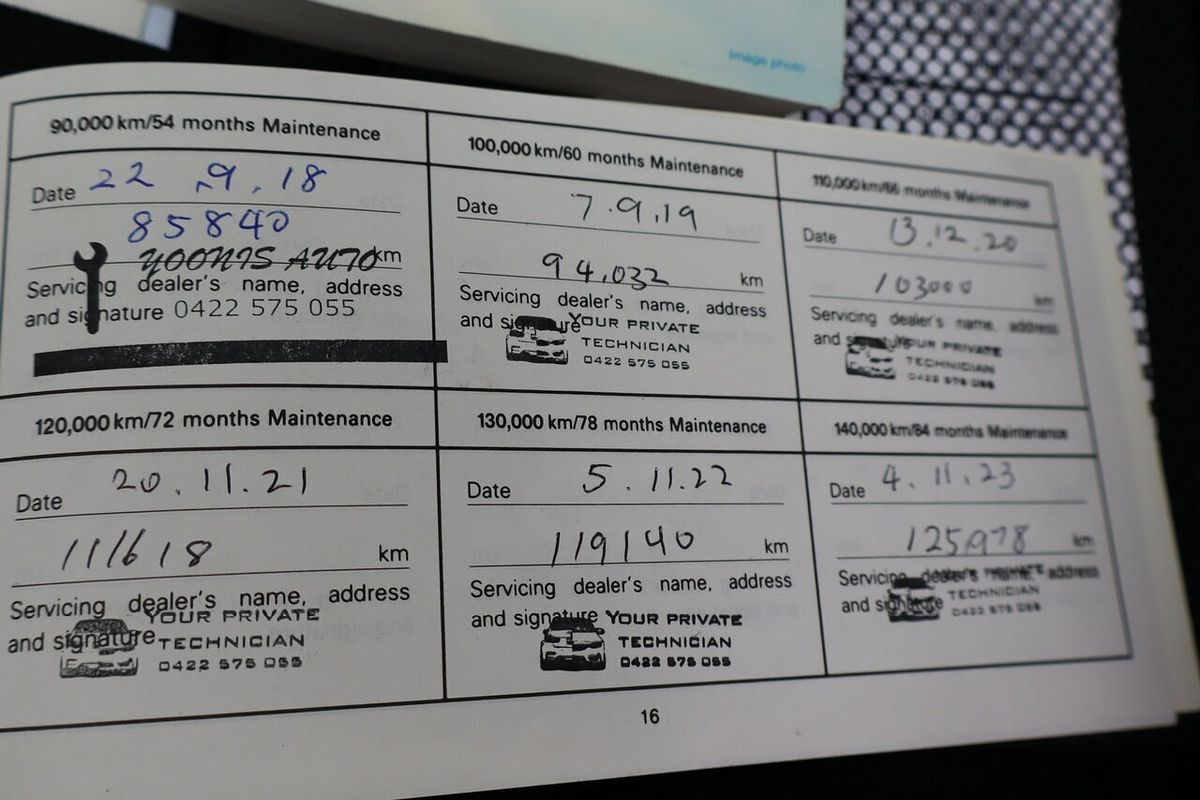 Image photo
90,000 km/54 months Maintenance
Date 22.9.18
85840 km
YOONIS AUTO
Servicing dealer's name, address
and signature 0422 575 055
100,000 km/60 months Maintenance
Date 7.9.19
94,032 km
Servicing dealer's name, address
and signature YOUR PRIVATE
TECHNICIAN
0422 575 055
110,000 km/66 months Maintenance
Date 13.12.20
103000 km
Servicing dealer's name, address
and signature YOUR PRIVATE
TECHNICIAN
0422 575 055
120,000 km/72 months Maintenance
Date 20.11.21
111618 km
Servicing dealer's name, address
YOUR PRIVATE
and signature TECHNICIAN
0422 575 055
130,000 km/78 months Maintenance
Date 5.11.22
119140 km
Servicing dealer's name, address
and signature YOUR PRIVATE
TECHNICIAN
0422 575 055
140,000 km/84 months Maintenance
Date 4.11.23
125978 km
Servicing dealer's name, address
YOUR PRIVATE
and signature TECHNICIAN
0422 575 055
16